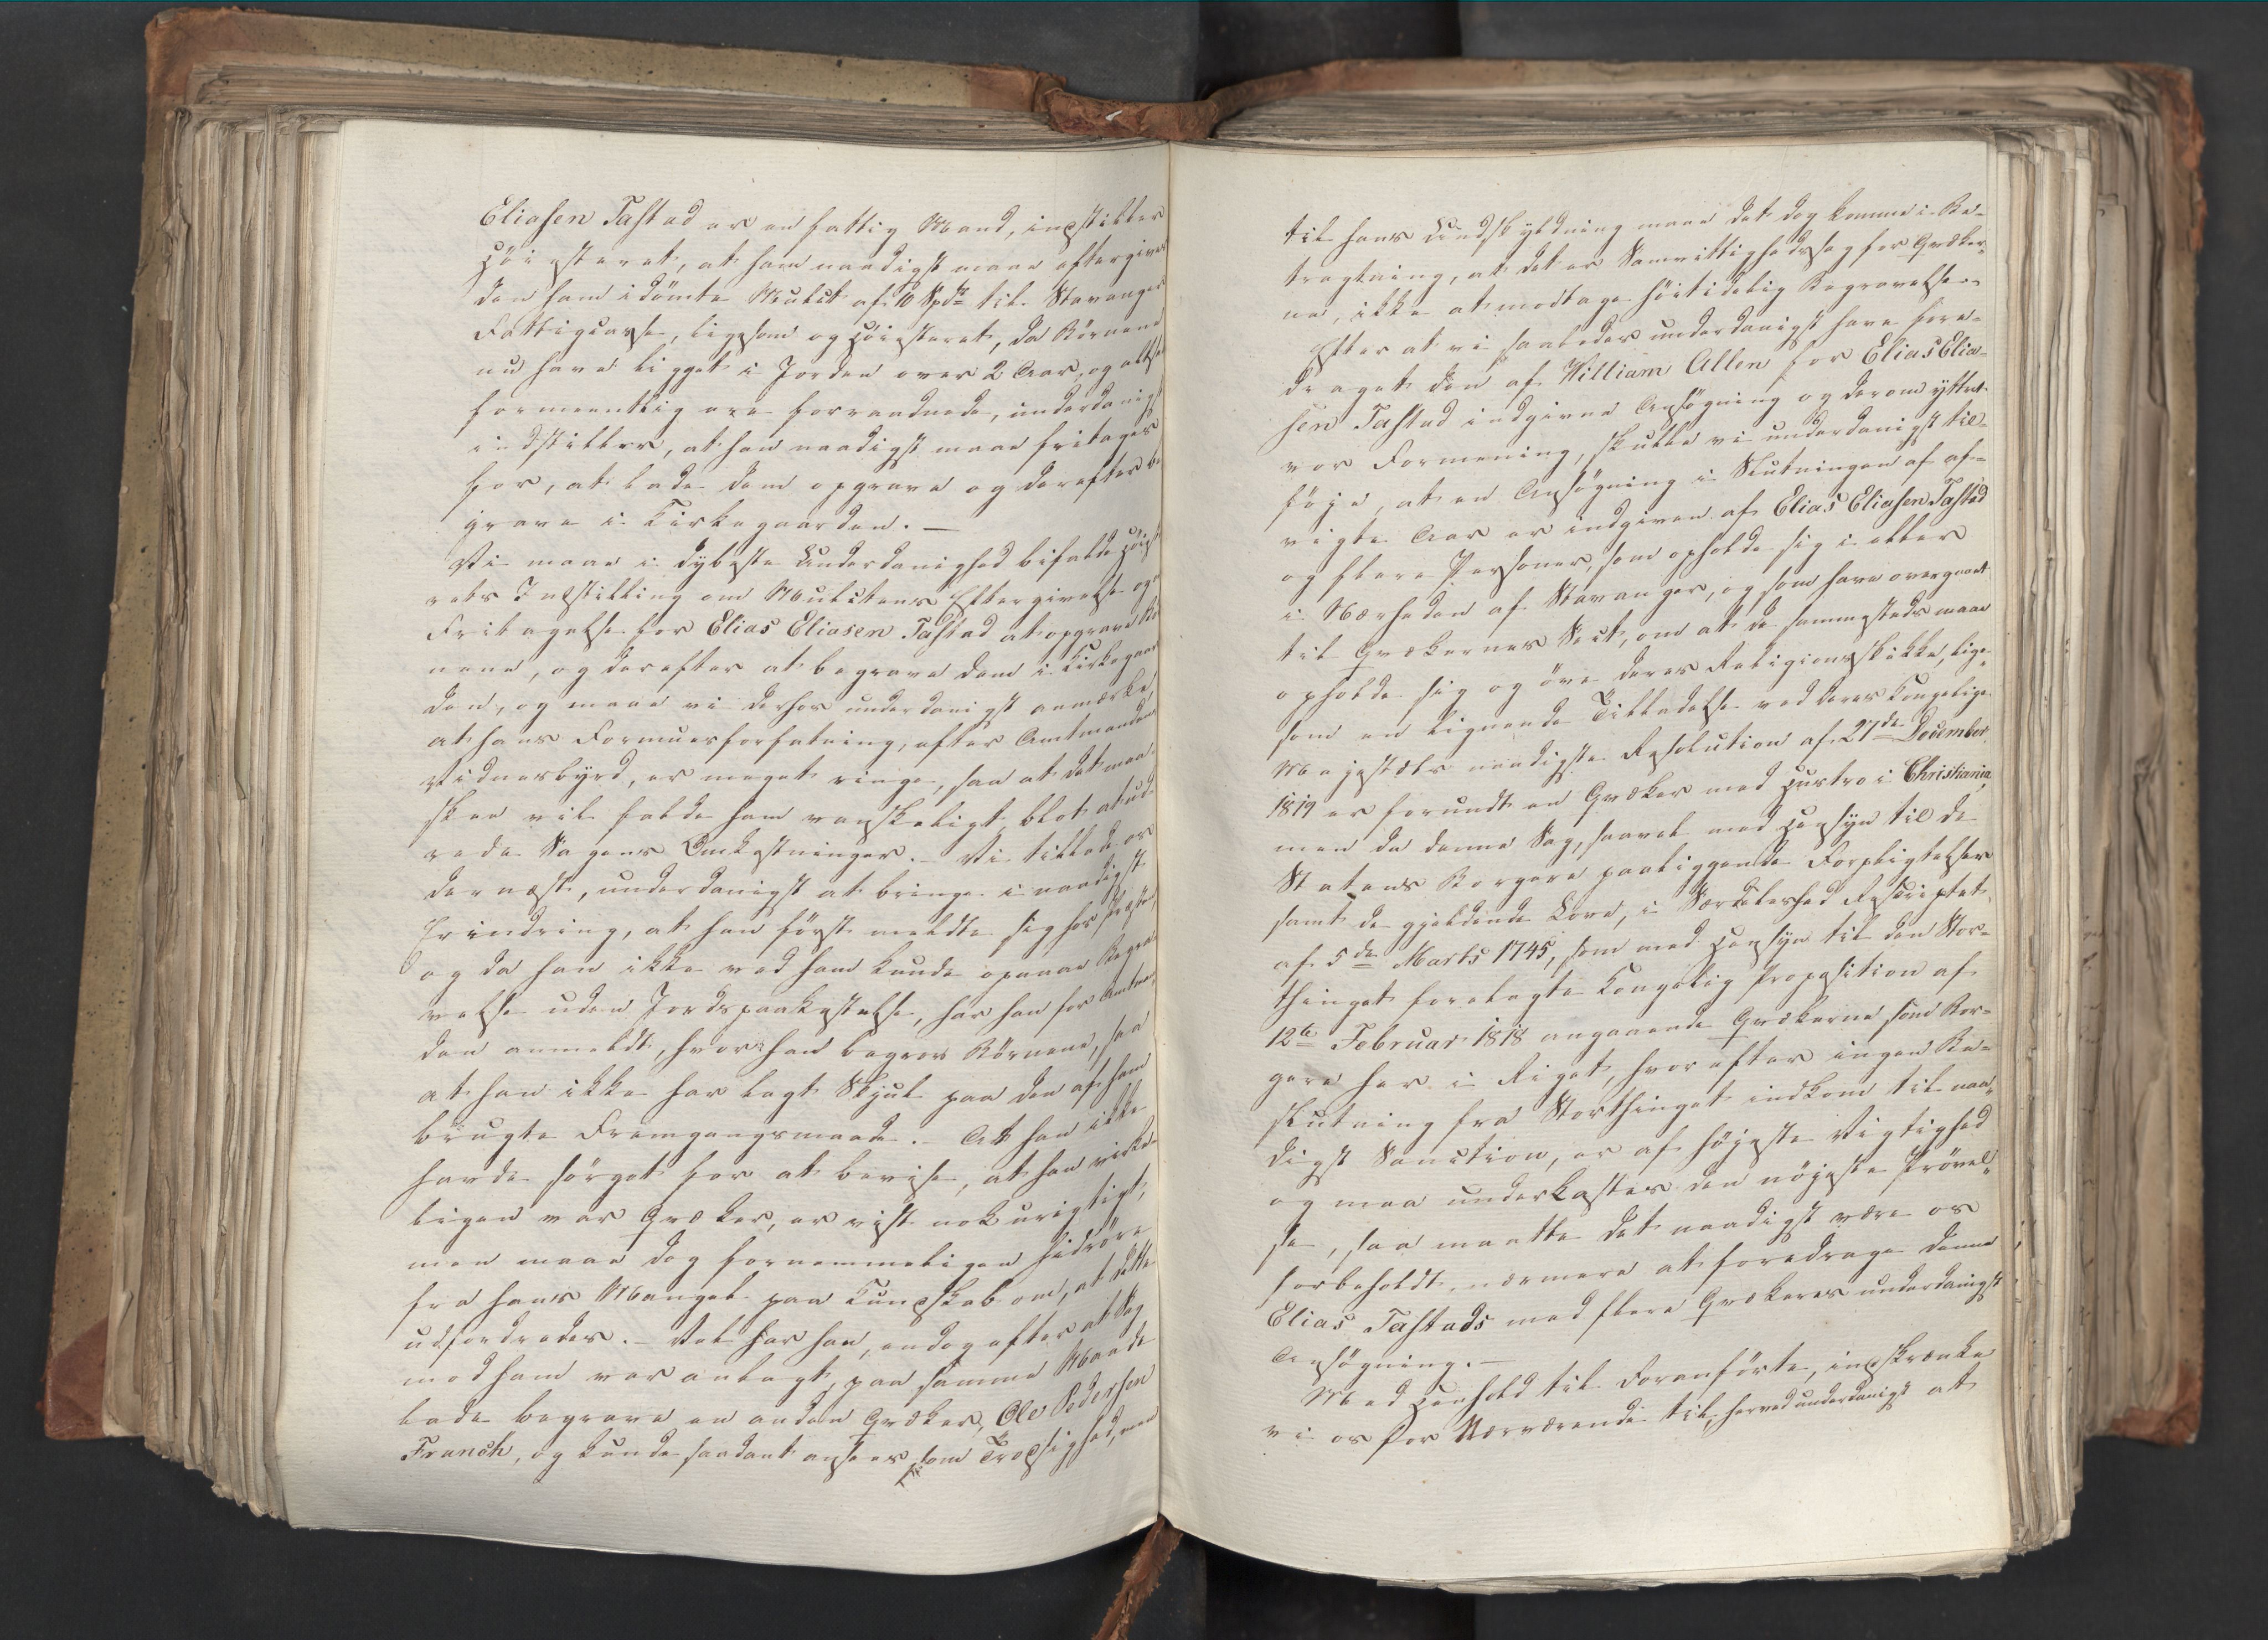 Eliasen Tastad er en fattig Mand, indstiller
Höiesteret, at ham naadigst maae eftergives
den ham idömte Mulct af 10 Spd til Stavanger
Fattigcasse, ligesom og Höiesteret, da Börnene
nu have ligget i Jorden over 2 Aar, og altsaa
formeentlig ere forraadnede, underdanigst
indstiller, at han naadigst maae fritages
for, at lade dem opgrave og derefter be-
grave i Kirkegaarden. —
Vi maae i dybeste Underdanighed bifalde Höieste-
rets Indstilling om Mulctens Eftergivelse og
Fritagelse for Elias Eliasen Tastad at opgrave Bör-
nene, og derefter at begrave dem i Kirkegaar-
den, og maae vi derhos underdanigst anmærke,
at hans Formuesforfatning, efter Amtmandens
Vidnesbyrd, er meget ringe, saa at det maa-
skee vil falde ham vanskeligt blot at ud-
rede Sagens Omkostninger. – Vi tillade os
dernæst, underdanigst at bringe i naadigst
Erindring, at han först meldte sig hos Præsten,
og da han ikke ved ham kunde opnaae Begra-
velse uden Jordspaakastelse, har han for Amtman-
den anmeldt, hvor han begrov Börnene, saa
at han ikke har lagt Skjul paa den af ham
brugte Fremgangsmaade. – At han ikke
havde sörget for at bevise, at han virke-
ligen var Qvæker, er vist nok urigtigt,
men maae dog fornemmeligen hidröre
fra hans Mangel paa Kundskab om, at dette
udfordredes. – Vel har han, endog efter at Sag
mod ham var anlagt, paa samme Maade
lade begrave en anden Qvæker, Ole Pedersen
Franck, og kunde saadant ansees som Trodsighed, men
til hans Undskyldning maae det dog komme i Be-
tragtning, at det er Samvittighedssag for Qvæker-
ne, ikke at modtage höitidelig Begravelse.
Efter at vi saaledes underdanigst have fore-
draget den af William Allen for Elias Elia-
sen Tastad indgivne Ansögning og derom yttret
vor Formening, skulle vi underdanigst til-
föje, at en Ansögning i Slutningen af af-
vigte Aar er indgiven af Elias Eliasen Tastad
og flere Personer, som opholde sig i eller
i Nærheden af Stavanger, og som have overgaaet
til Qvækernes Sect, om at de sammesteds maae
opholde sig og öve deres Religionsskikke, lige-
som en lignende Tilladelse ved Deres Kongelige
Majestæts naadigste Resolution af 27de December
1819 er forundt en Qvæker med Hustro i Christiania,
men da denne Sag, saavel med Hensyn til de
Statens Borgere paaliggende Forpligtelser
samt de gjeldende Love, i Særdeleshed Rescriptet
af 5de Marts 1745, som med Hensyn til den Stor-
thinget forelagte Kongelig Proposition af
12te Februar 1818 angaaende Qvækerne som Bor-
gere her i Riget, hvorefter ingen Be-
slutning fra Storthinget indkom til naa-
digst Sanction, er af höjeste Vigtighed
og maa underkastes den nöjeste Prövel-
se, saa maatte det naadigst være os
forbeholdt nærmere at foredrage denne
Elias Tastads med flere Qvækeres underdanigst
Ansögning. —
Med Henhold til Foranförte, indskrænke
vi os for Nærværende til, herved underdanigst at